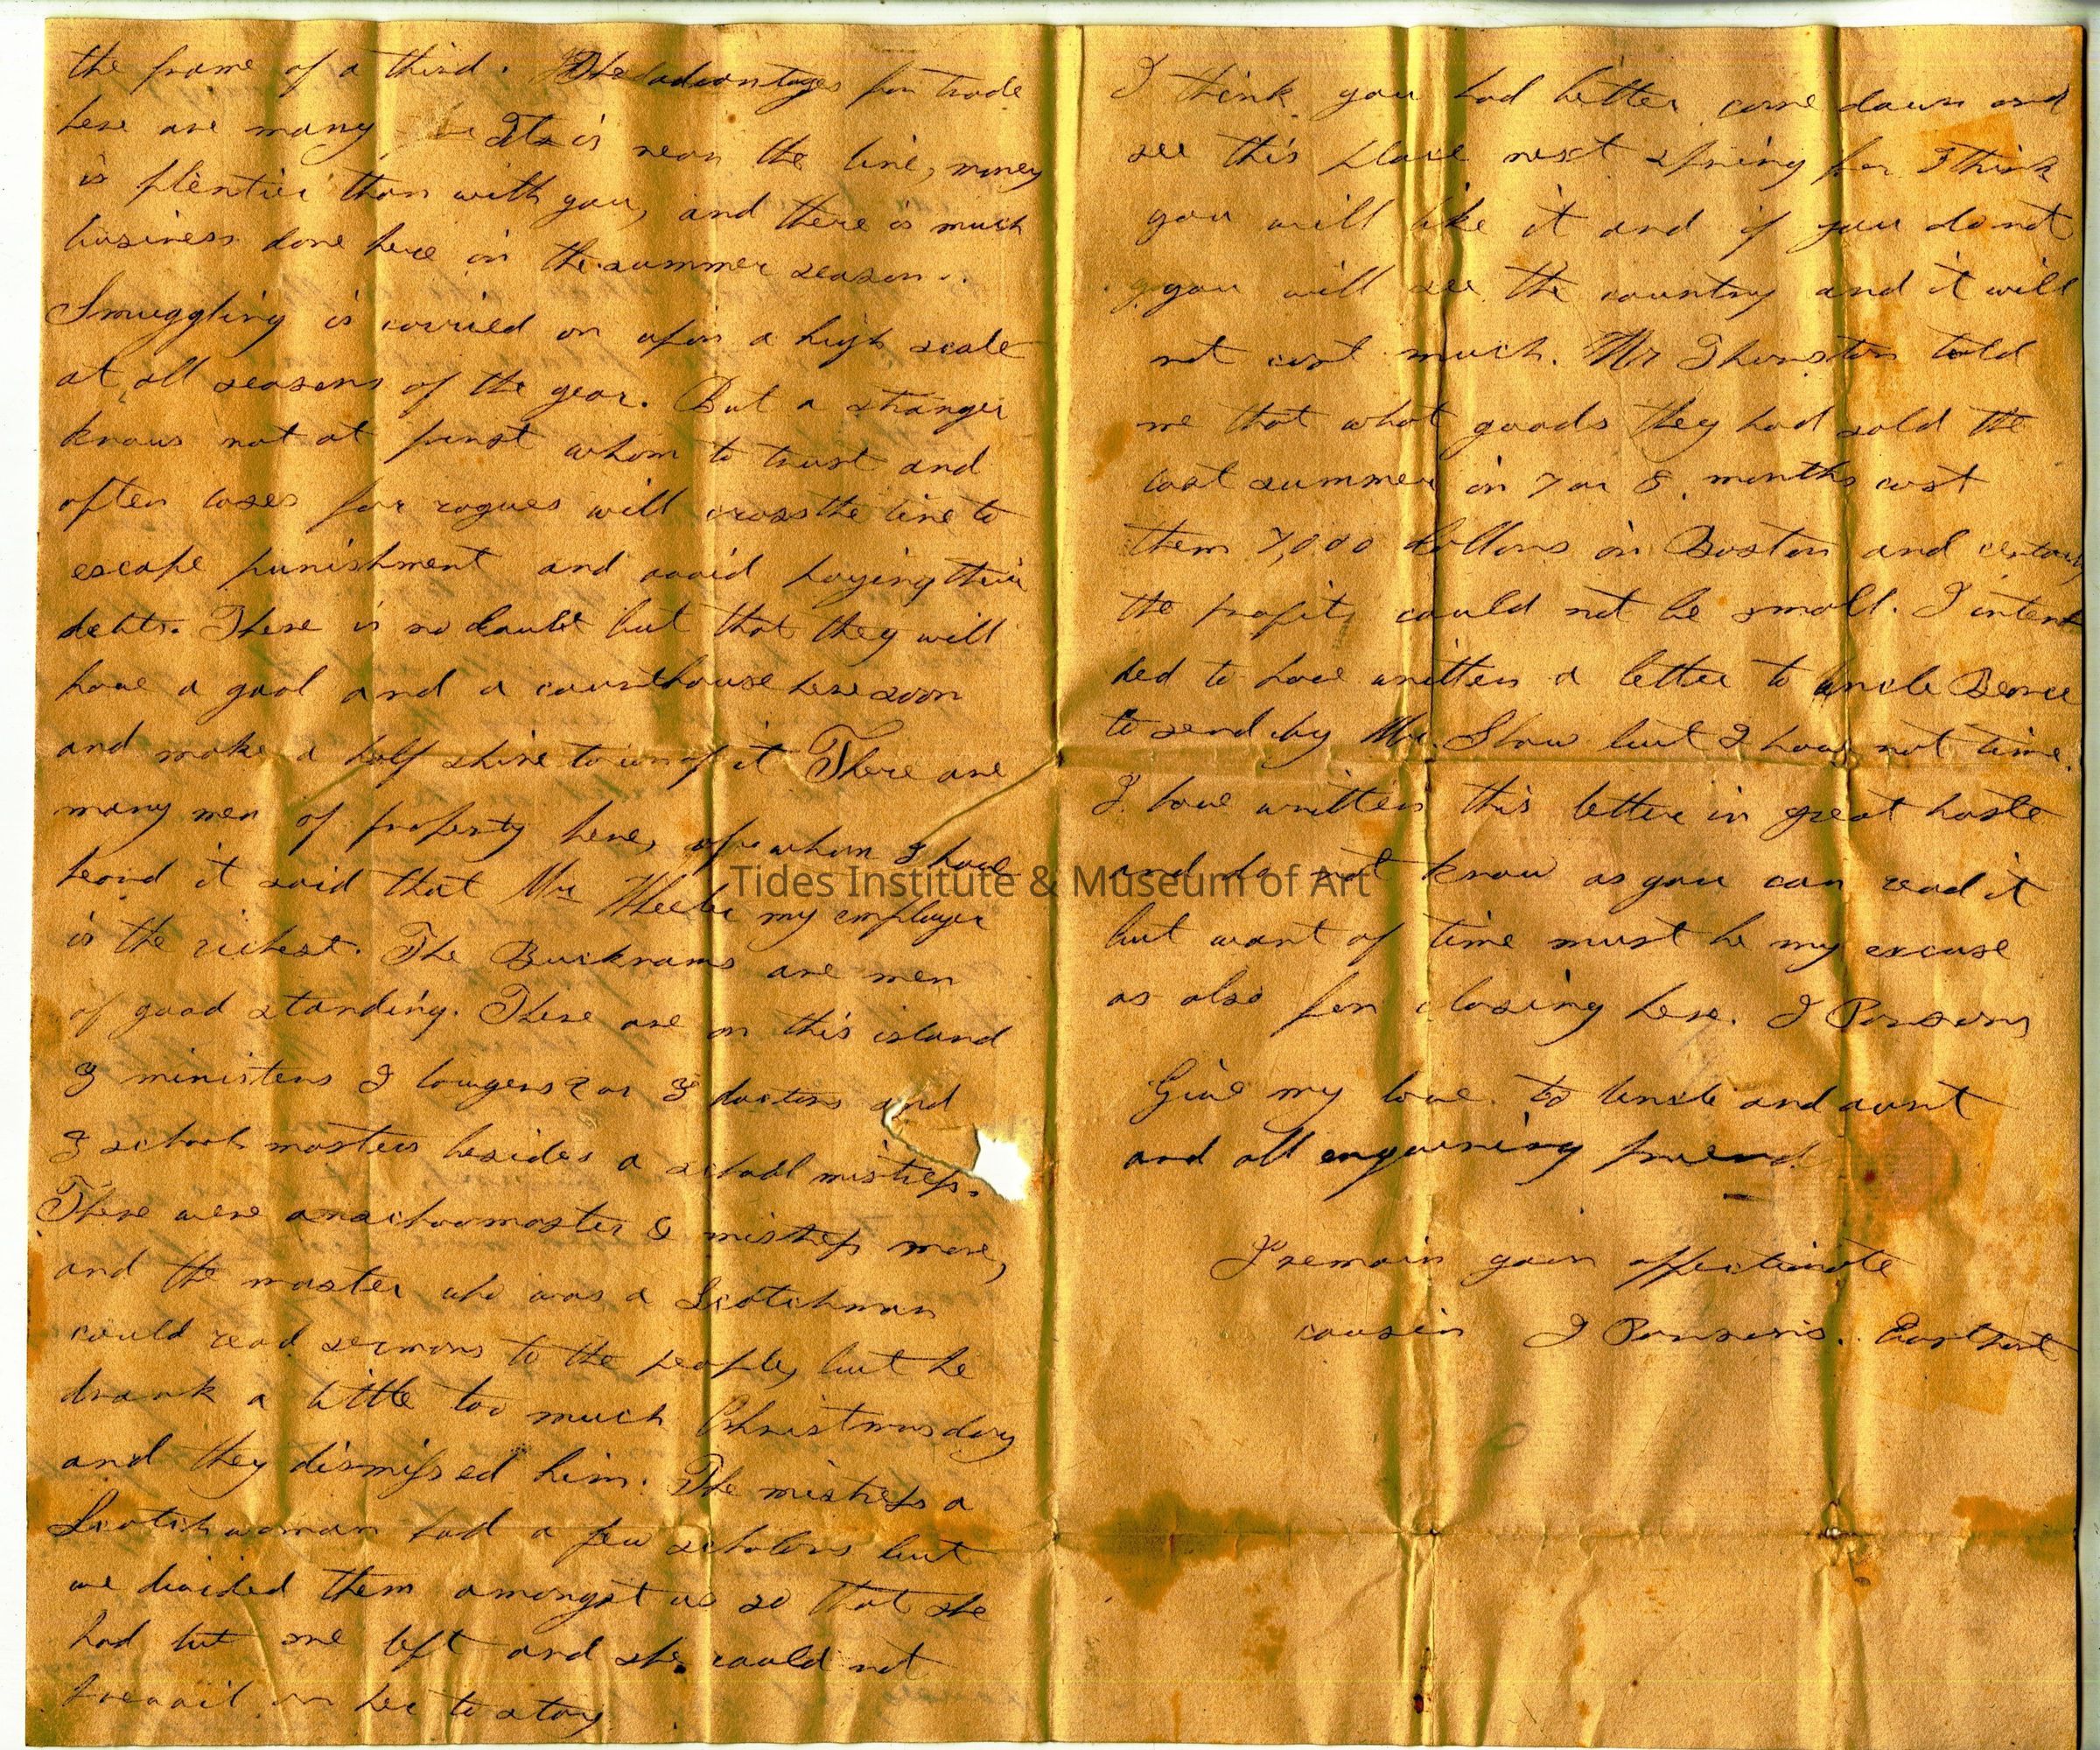 the frame of a third. The advantages for trade
here are many It is near the line, money
is plentier than with you, and there is much
business done here in the summer season.
Smuggling is carried on upon a high scale
at all seasons of the year. But a stranger
knows not at first whom to trust and
often loses for rogues will cross the line to
escape punishment and avoid paying their
debts. There is no doubt but that they will
have a gaol and a courthouse here soon
and make a half shire town of it There are
many men of property here, of whom I have
heard it said that Mr Wheeler my employer
is the richest. The Bucknams are men
of good standing. There are on this island
3 ministers 3 lawyers 2 or 3 doctors and
3 school masters besides a school mistress.
There were a schoolmaster & mistress more,
and the master who was a Scotchman
could read sermons to the people, but he
drank a little too much Christmas day
and they dismissed him. The mistress a
Scotchwoman had a few scholars but
we divided them amongst us so that she
had but one left and she could not
prevail on her to stay
I think you had better come down and
see this place next spring for I think
you will like it and if you do not
you will see the country and it will
not cost much. Mr Thurston told
me that what goods they had sold the
last summer in 7 or 8 months cost
them 7,000 dollars in Boston and certainly
the profits could not be small. I inten
ded to have written a letter to uncle
to send by Mr. Shaw but I have not time.
I have written this letter in great haste
and do not know as you can read it
but want of time must be my excuse
as also for closing here. J Parsons
Give my love to uncle and aunt
and all enquiring friends
I remain your affectionate
cousin J Parsons. Eastport
Tides Institute & Museum of Art